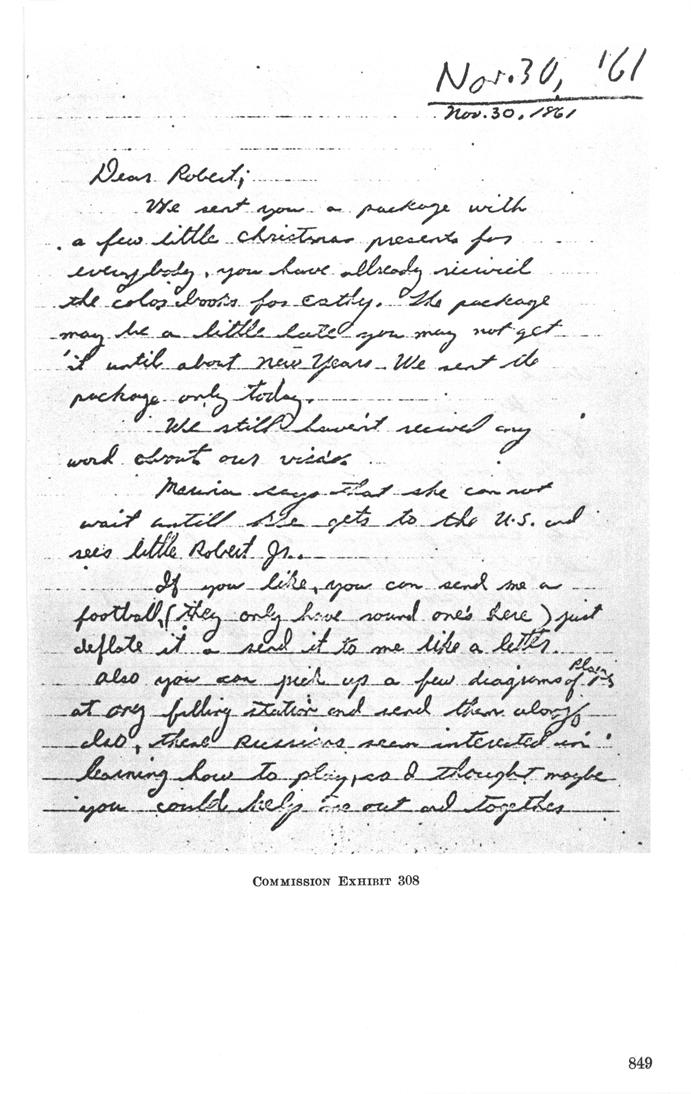 Nov.30, '61
Nov.30, 1961
Dear Robert;
We sent you a package with
a few little christmas presents for
everybody, you have allready recived
the color books for Cathy. The package
may be a little late you may not get
it until about New Years. We sent the
package only today.
We still haven't recived any
word about our visa's.
Marina says that she can not
wait untill she gets to the U.S. and
see's little Robert Jr..
If you like, you can send me a
football, (they only have round one's here) just
deflate it a send it to me like a letter.
also you can pick up a few diagrams of Plays
at any filling station and send them along
also, these Russians seem interested in
learning how to play, so I thought maybe
you could help me out and together
COMMISSION EXHIBIT 308
849